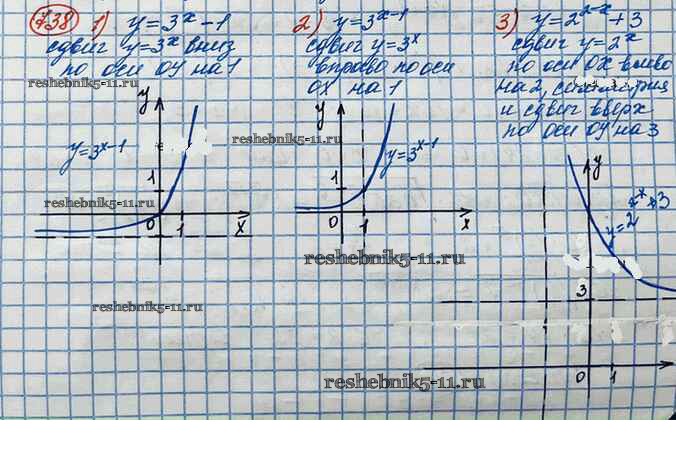 738 1) y=3ˣ-1
сдвиг y=3ˣ вниз
по оси OY на 1
reshebnik5-11.ru
y
y=3ˣ⁻¹
1
reshebnik5-11.ru
0 1 x
reshebnik5-11.ru
2) y=3ˣ⁻¹
сдвиг y=3ˣ
вправо по оси
OX на 1
y
reshebnik5-11.ru
y=3ˣ⁻¹
1
0 1 x
reshebnik5-11.ru
3) y=2²⁻ˣ+3
сдвиг y=2ˣ
по оси OX влево
на 2, симметрия
и сдвиг вверх
по оси OY на 3
y
+3
y=2
3
0 1
reshebnik5-11.ru